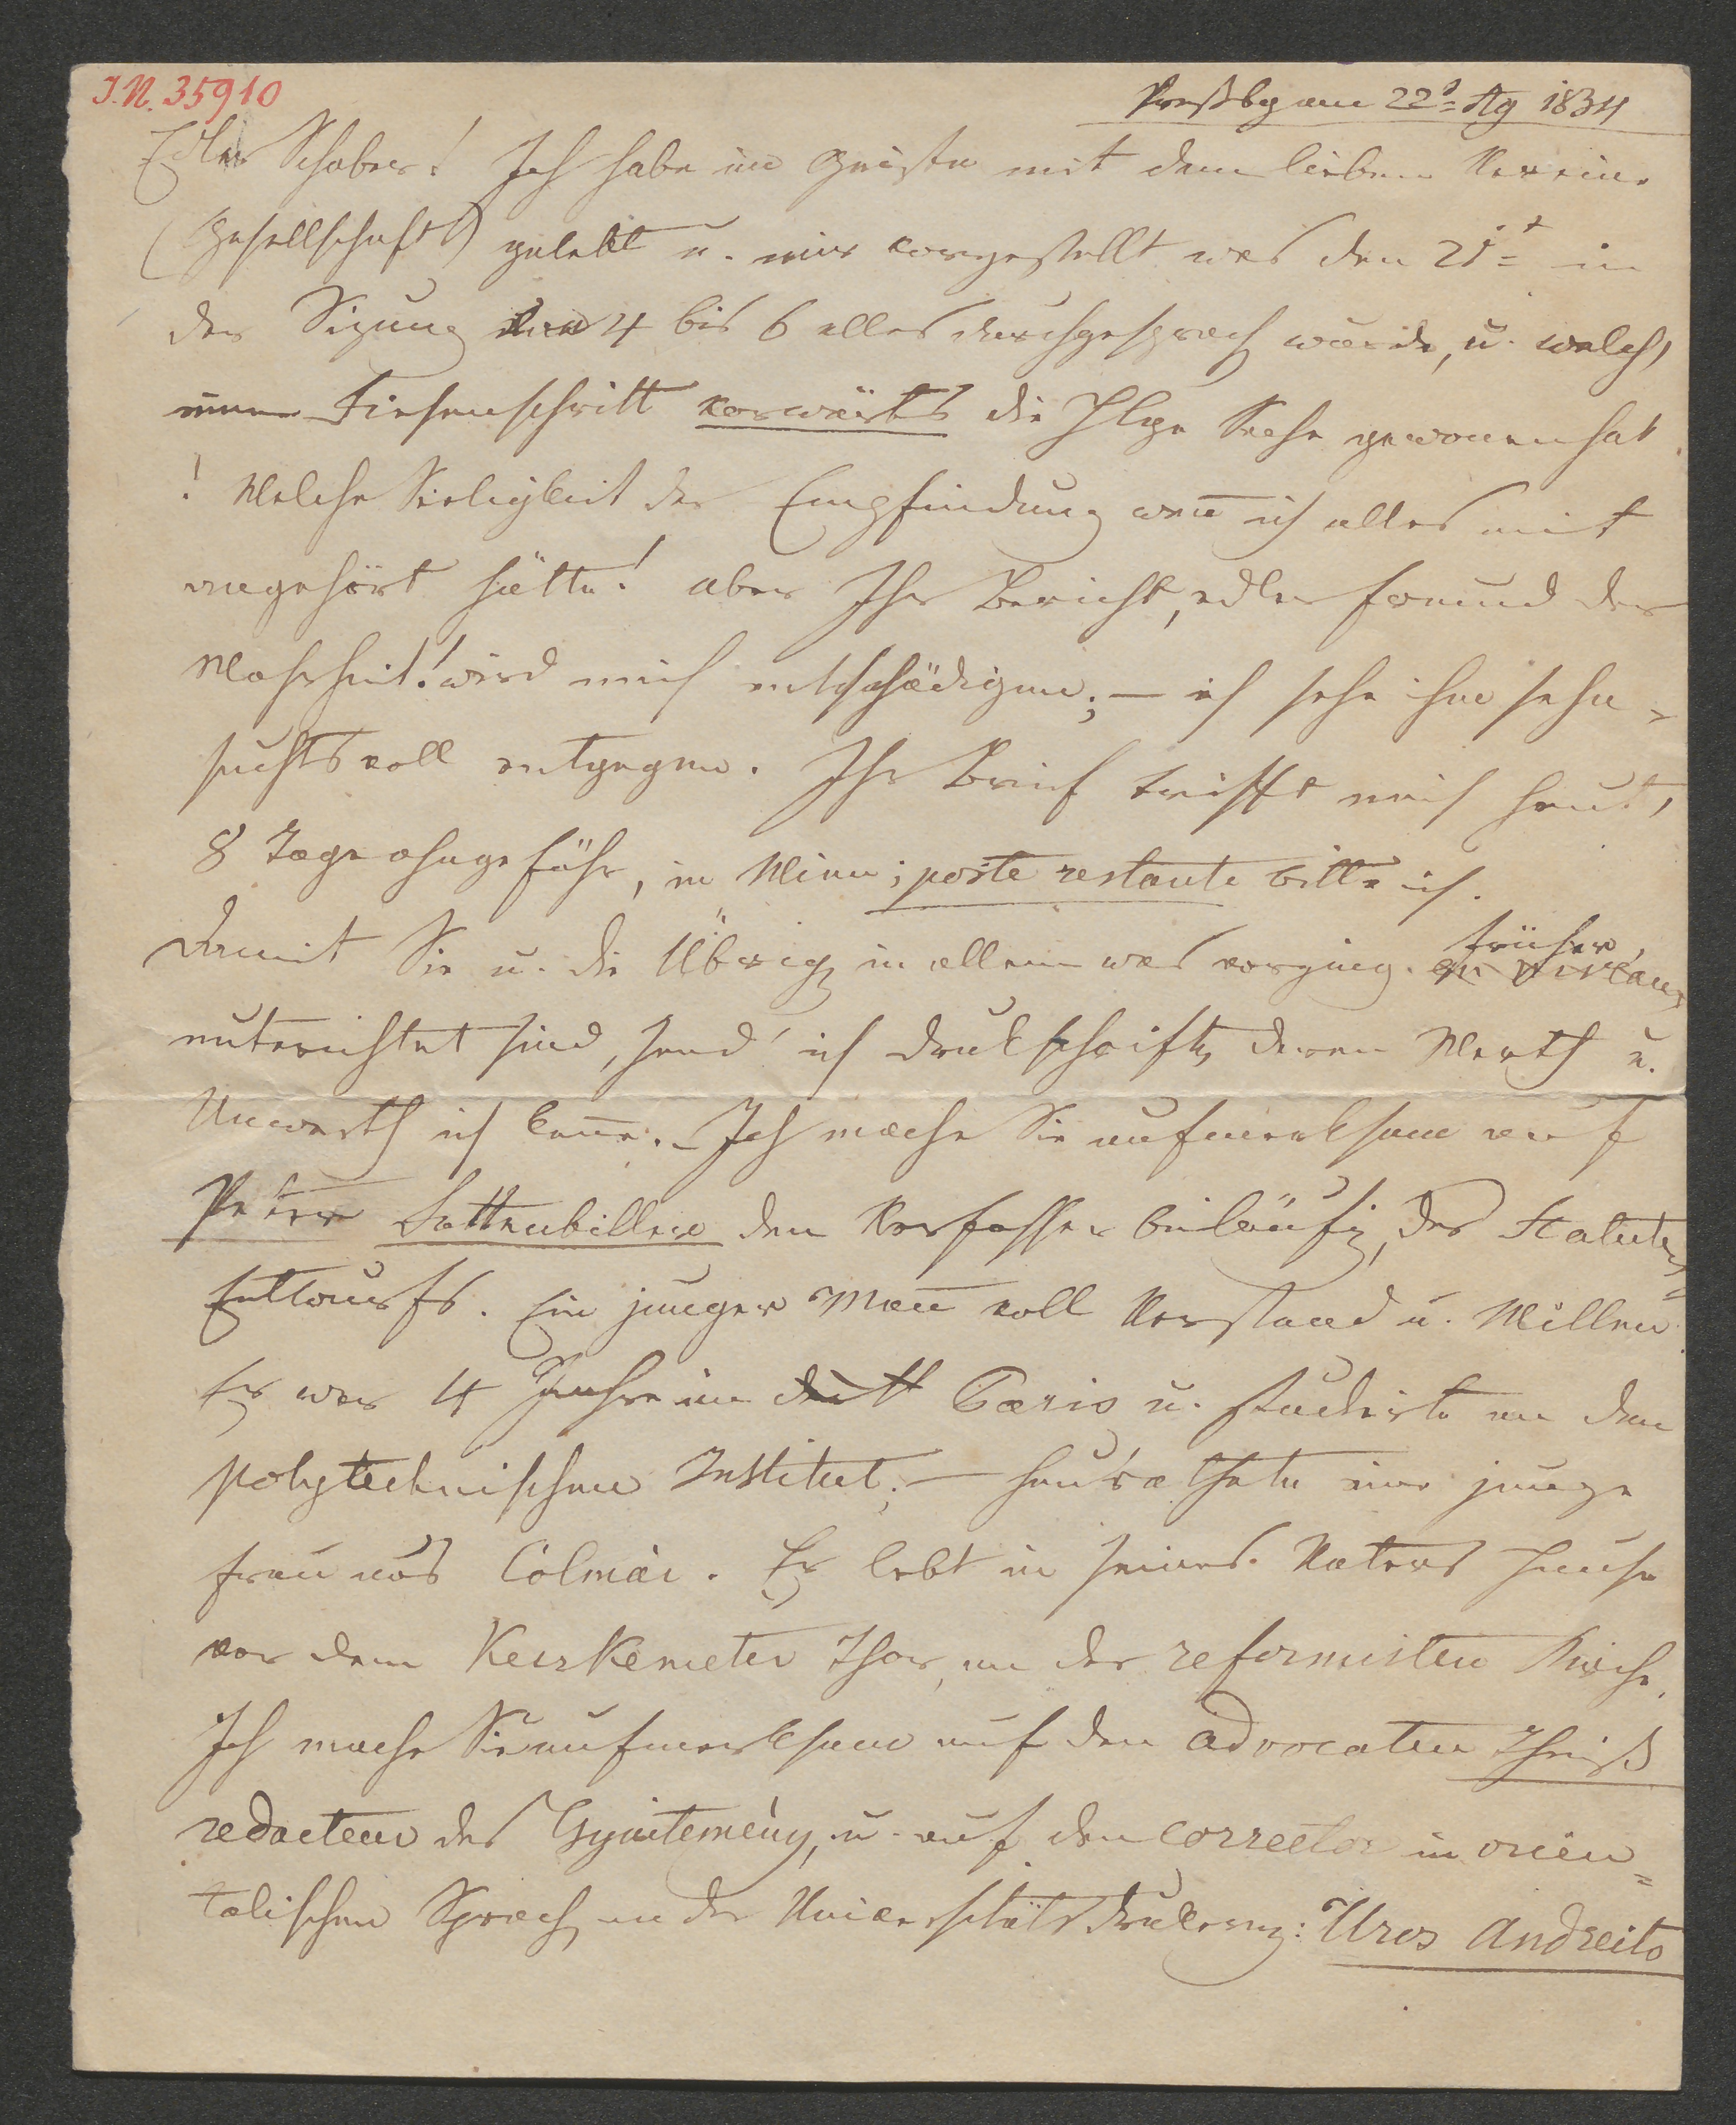 I.N. 35910
Preßbg am 22t= Aug 1834
Edler Schober! Ich habe im Geiste mit dem lieben Vereine
(Gesellschaft) gelebt u. mir vorgestellt was den 21t= in
der Sizung von 4 bis 6 alles durchgesprochen wurde, u. welch'
einen Riesenschritt vorwärts die Hlge Sache gewonnen hat
! Welche Seeligkeit der Empfindung wen̄ ich alles mit
angehört hätte! aber Ihr Bericht, edler Freund der
Wahrheit! wird mich entschädigen; – ich sehe ihm sehn=
suchtsvoll entgegen. Ihr Brief trifft mich heut'
8 Tage ohngefähr, in Wien; poste restante bitte ich.
Damit Sie u. die Übrigen in allem was vorging. früher,
unterrichtet sind, send' ich Drukschriften deren Werth u.
Unwerth ich ken̄e. – Ich mache Sie aufmerksam auf
Peter den Verfasser beiläufig, des Statuten=
Entwurfs. Ein junger Man̄ voll Verstand u. Willen.
Er war 4 Jahre in Paris u. studierte an dem
polytechnischen Institut; – heurathete eine junge
Frau aus Colmár. Er lebt in seines Vaters Hause
vor dem Kecskemeter Thor, an der reformirten Kirche.
Ich mache Sie aufmerksam auf den Advocaten Theiß
redacteur des Gyüjtemény, u. auf den Corrector in orien=
talischen Sprachen an der Universitäts drukerey: Uros Andreits